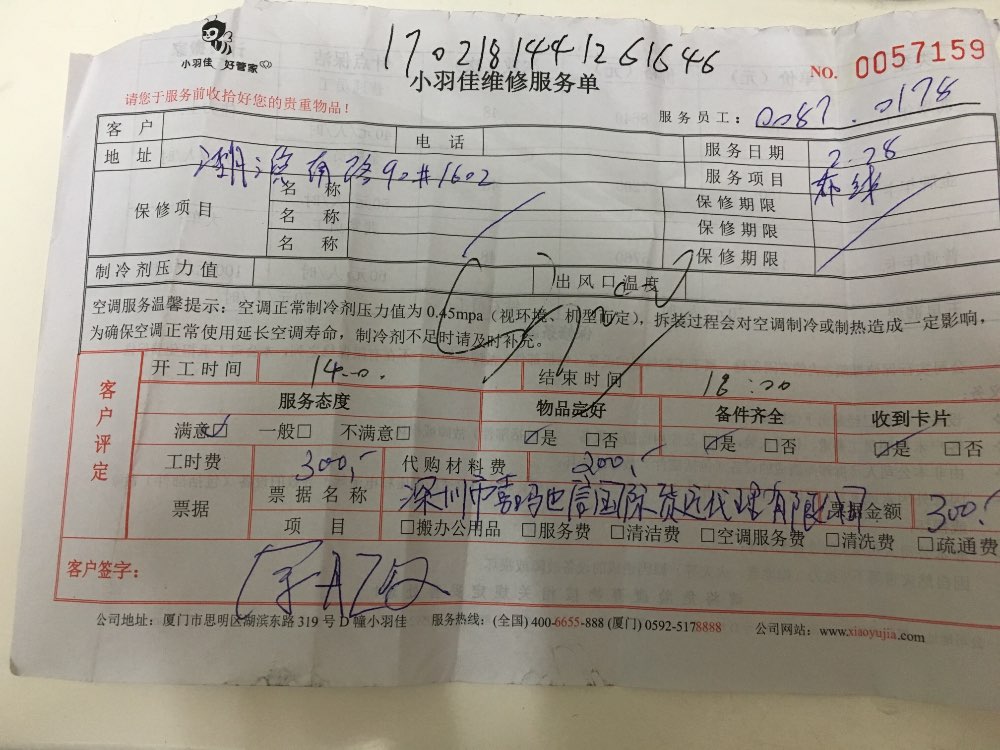 1702181441261646
小羽佳 好管家
小羽佳维修服务单
NO. 0057159
请您于服务前收拾好您的贵重物品！
服务员工：0087.0178
客户 电话 服务日期 2.28
地址 湖滨南路90#1602 服务项目 布线
保修项目 名称 保修期限
名称 保修期限
名称 保修期限
制冷剂压力值 出风口温度
空调服务温馨提示：空调正常制冷剂压力值为 0.45mpa（视环境、机型而定），拆装过程会对空调制冷或制热造成一定影响，
为确保空调正常使用延长空调寿命，制冷剂不足时请及时补充。
客户评定
开工时间 14:0. 结束时间 18:00
服务态度 物品完好 备件齐全 收到卡片
满意☑ 一般□ 不满意□ ☑是 □否 ☑是 □否 ☑是 □否
工时费 300,- 代购材料费 200,-
票据 票据名称 深圳市 国际货运代理有限公司 票据金额 300,-
项目 □搬办公用品 □服务费 □清洁费 □空调服务费 □清洗费 □疏通费
客户签字：
公司地址：厦门市思明区湖滨东路 319 号 D 幢小羽佳 服务热线：(全国) 400-6655-888 (厦门) 0592-5178888 公司网站：www.xiaoyujia.com